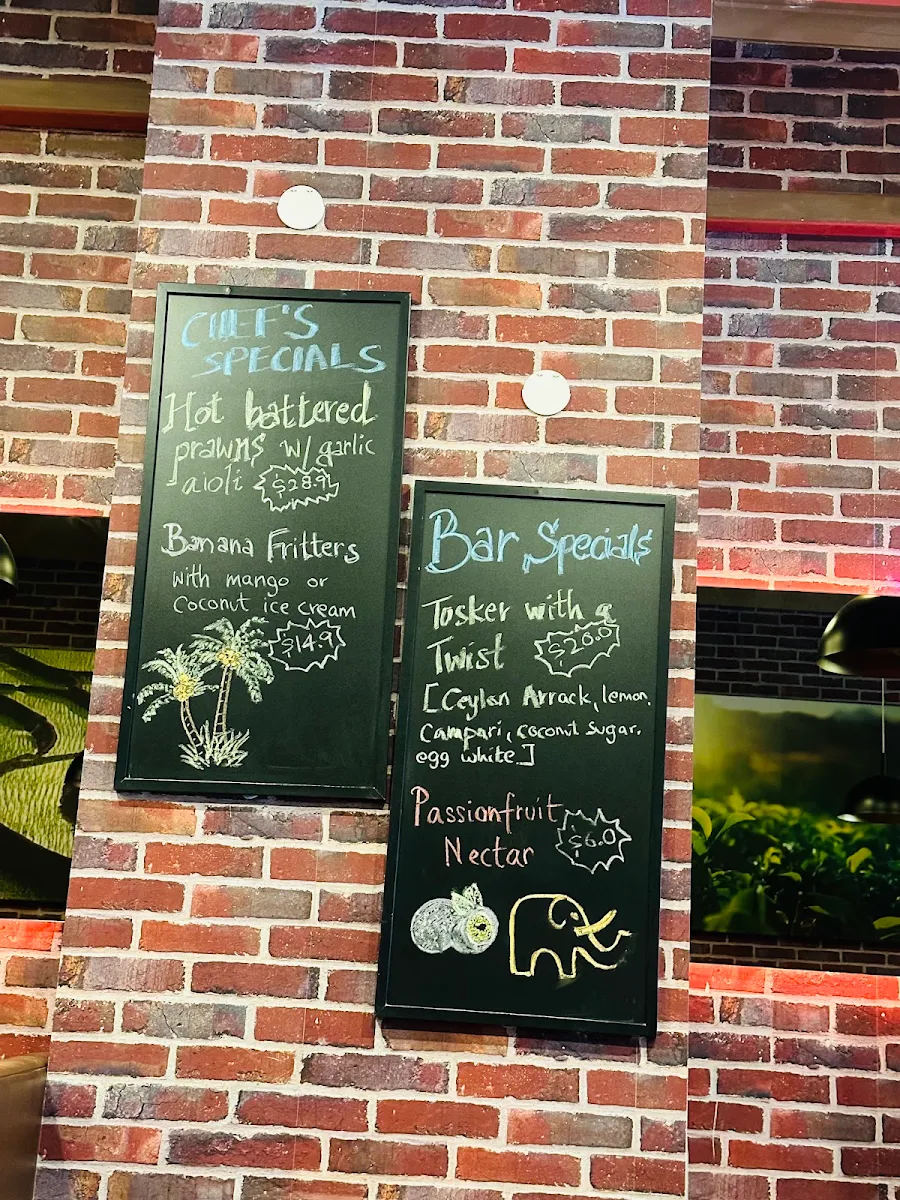 CHEF'S
SPECIALS
Hot battered
prawns w/ garlic
aioli $28.9
Banana Fritters
with mango or
Coconut ice cream
$14.9
Bar Specials
Tosker with a
Twist $20.0
[Ceylon Arrack, lemon,
Campari, coconut sugar,
egg white]
Passionfruit
Nectar $6.0